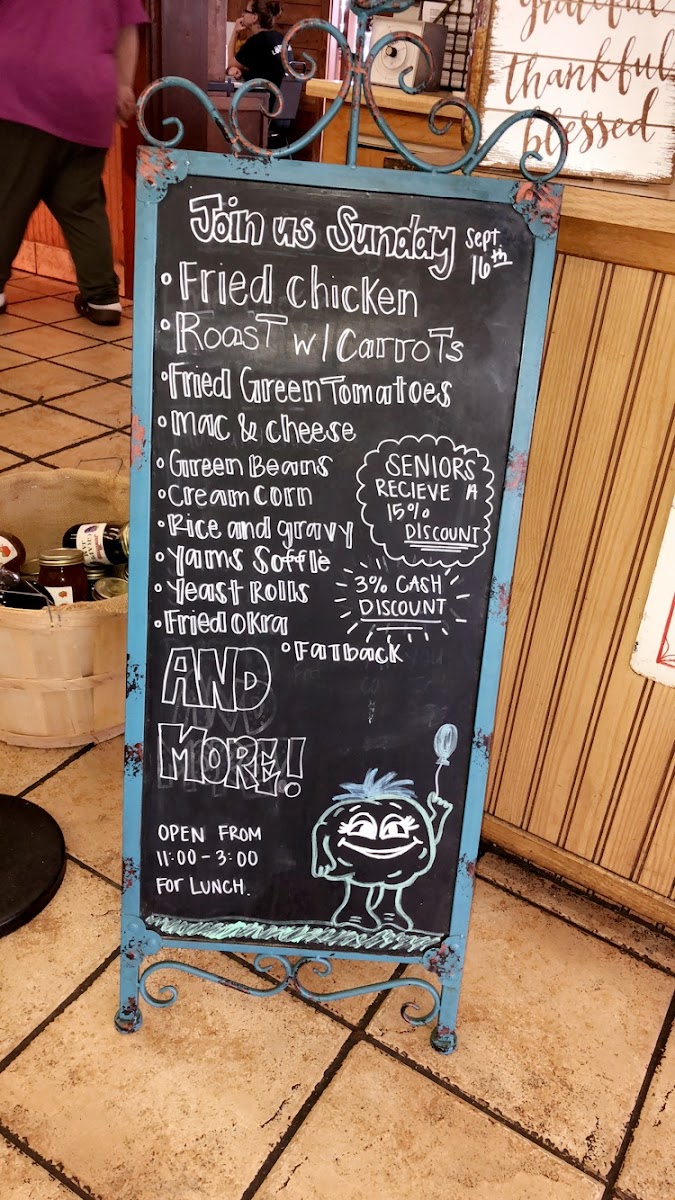 grateful
thankful
blessed
Join us Sunday Sept. 16th
• Fried Chicken
• Roast w/ Carrots
• Fried Green Tomatoes
• Mac & Cheese
• Green Beans
• Cream Corn
• Rice and gravy
• Yams Soffle
• Yeast Rolls
• Fried Okra
• Fatback
AND
MORE!
SENIORS
RECIEVE A
15%
DISCOUNT
3% CASH
DISCOUNT
OPEN FROM
11:00 - 3:00
FOR LUNCH.